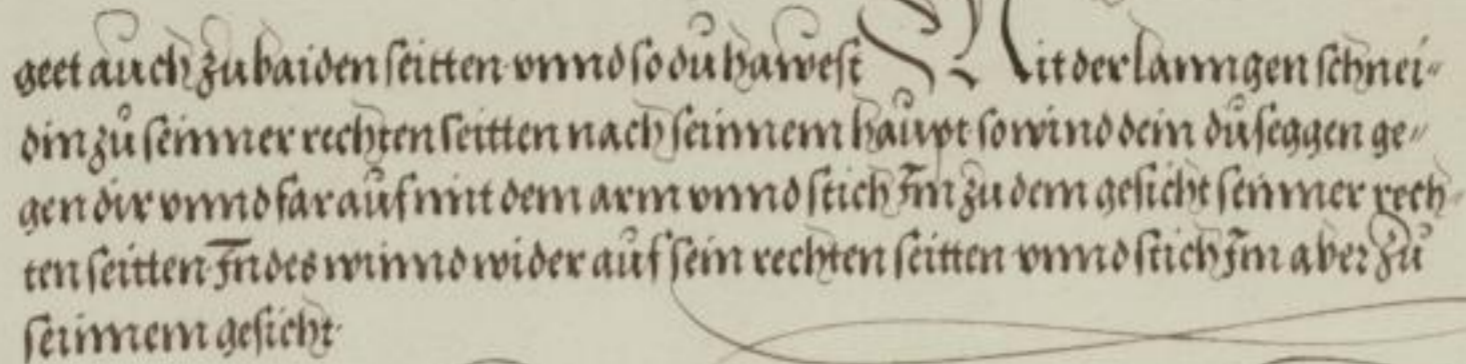 geet auch zu baiden seitten vnnd so du hawest Mit der lanngen schnei=
din zů seinner rechten seitten nach seinnem haupt so wind dein duseggen ge=
gen dir vnnd far auf mit dem arm vnnd stich Im zu dem gesicht seinner rech=
ten seitten Indes winnd wider auf sein rechten seitten vnnd stich Im aber zů
seinnem gesicht·